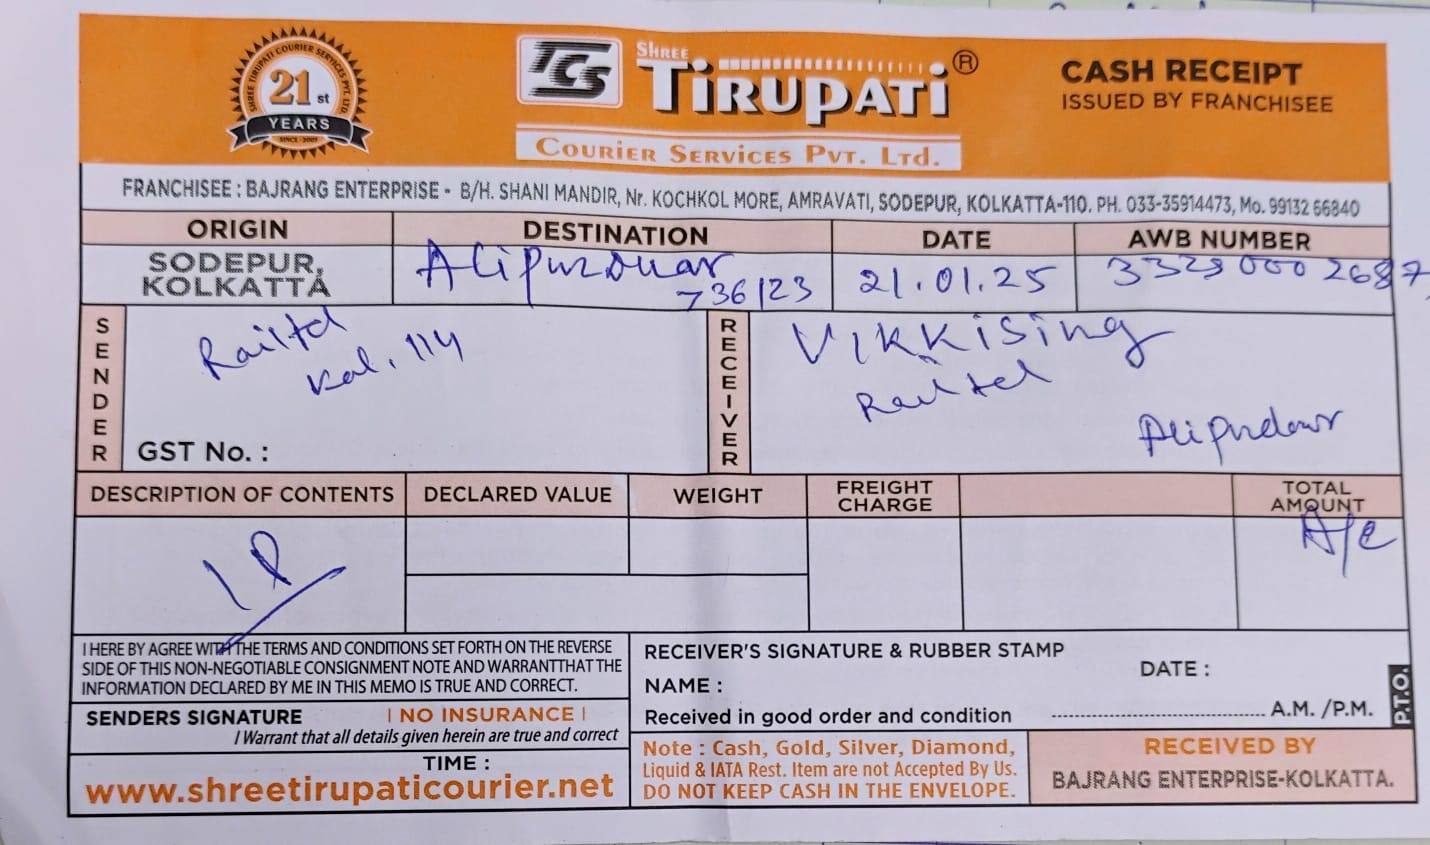 SHREE TIRUPATI COURIER SERVICES PVT. LTD
21 st
YEARS
SINCE - 2003
TCS
SHREE
TIRUPATI ®
COURIER SERVICES PVT. LTD.
CASH RECEIPT
ISSUED BY FRANCHISEE
FRANCHISEE : BAJRANG ENTERPRISE - B/H. SHANI MANDIR, Nr. KOCHKOL MORE, AMRAVATI, SODEPUR, KOLKATTA-110. PH. 033-35914473, Mo. 99132 66840
ORIGIN DESTINATION DATE AWB NUMBER
SODEPUR, KOLKATTA
Alipurduar
736123
21.01.25
332900002687
SENDER
Railtel
Kol. 114
GST No. :
RECEIVER
VIKKISING
Railtel
Alipurduar
DESCRIPTION OF CONTENTS DECLARED VALUE WEIGHT FREIGHT CHARGE TOTAL AMOUNT
A/c
I HERE BY AGREE WITH THE TERMS AND CONDITIONS SET FORTH ON THE REVERSE
SIDE OF THIS NON-NEGOTIABLE CONSIGNMENT NOTE AND WARRANTTHAT THE
INFORMATION DECLARED BY ME IN THIS MEMO IS TRUE AND CORRECT.
SENDERS SIGNATURE | NO INSURANCE |
I Warrant that all details given herein are true and correct
TIME :
www.shreetirupaticourier.net
RECEIVER'S SIGNATURE & RUBBER STAMP
NAME :
DATE :
Received in good order and condition ........................................ A.M. /P.M.
P.T.O.
Note : Cash, Gold, Silver, Diamond,
Liquid & IATA Rest. Item are not Accepted By Us.
DO NOT KEEP CASH IN THE ENVELOPE.
RECEIVED BY
BAJRANG ENTERPRISE-KOLKATTA.